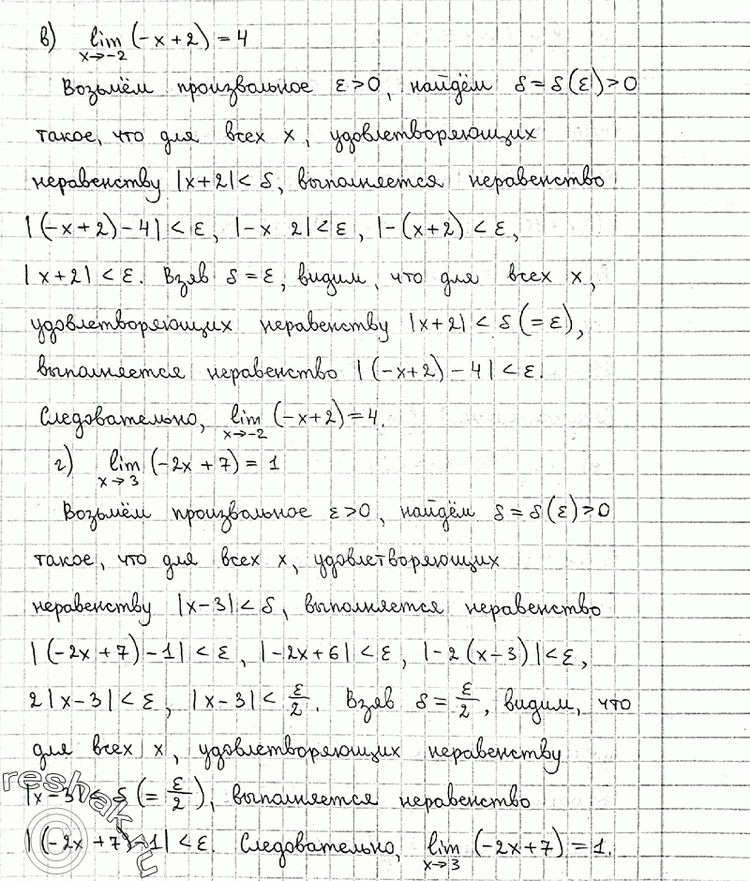 в) lim x→-2 (-x+2) = 4
Возьмём произвольное ε>0, найдём δ=δ(ε)>0
такое, что для всех x, удовлетворяющих
неравенству |x+2|<δ, выполняется неравенство
|(-x+2)-4|<ε, |-x 2|<ε, |-(x+2)<ε,
|x+2|<ε. Взяв δ=ε, видим, что для всех x,
удовлетворяющих неравенству |x+2|<δ(=ε),
выполняется неравенство |(-x+2)-4|<ε.
Следовательно, lim x→-2 (-x+2)=4.
г) lim x→3 (-2x+7) = 1
Возьмём произвольное ε>0, найдём δ=δ(ε)>0
такое, что для всех x, удовлетворяющих
неравенству |x-3|<δ, выполняется неравенство
|(-2x+7)-1|<ε, |-2x+6|<ε, |-2(x-3)|<ε,
2|x-3|<ε, |x-3|<ε/2. Взяв δ=ε/2, видим, что
для всех x, удовлетворяющих неравенству
|x-3|<δ(=ε/2), выполняется неравенство
|(-2x+7)-1|<ε. Следовательно, lim x→3 (-2x+7)=1.
reshak.ru